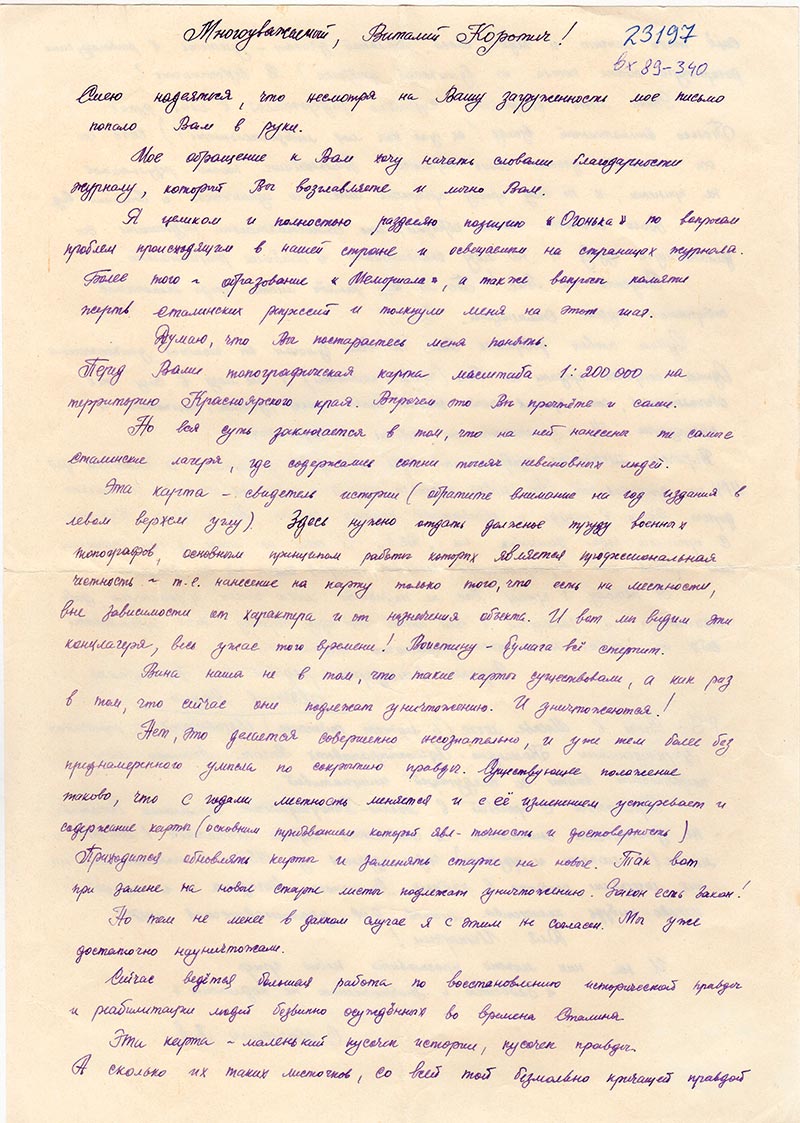 Многоуважаемый, Виталий Коротич!
23197
вх 89-340
Смею надеяться, что несмотря на Вашу загруженность мое письмо
попало Вам в руки.
Мое обращение к Вам хочу начать словами благодарности
журналу, который Вы возглавляете и лично Вам.
Я целиком и полностью разделяю позицию «Огонька» по вопросам
проблем происходящим в нашей стране и освещаемым на страницах журнала.
Более того - образование «Мемориала», а также вопросы памяти
жертв сталинских репрессий и толкнули меня на этот шаг.
Думаю, что Вы постараетесь меня понять.
Перед Вами топографическая карта масштаба 1:200 000 на
территорию Красноярского края. Впрочем это Вы прочтёте и сами.
Но вся суть заключается в том, что на ней нанесены те самые
Сталинские лагеря, где содержались сотни тысяч невиновных людей.
Эта карта - свидетель истории (обратите внимание на год издания в
левом верхем углу). Здесь нужно отдать должное труду военных
топографов, основным принципом работы которых является профессиональная
честность - т.е. нанесение на карту только того, что есть на местности,
вне зависимости от характера и от назначения объекта. И вот мы видим эти
концлагеря, весь ужас того времени! Воистину - бумага всё стерпит.
Вина наша не в том, что такие карты существовали, а как раз
в том, что сейчас они подлежат уничтожению. И уничтожаются!
Нет, это делается совершенно несознательно, и уже тем более без
преднамеренного умысла по сокрытию правды. Существующее положение
таково, что с годами местность меняется и с её изменением устаревает и
содержание карты (основным требованием которой явл- точность и достоверность)
Приходится обновлять карты и заменять старые на новые. Так вот
при замене на новые старые листы подлежат уничтожению. Закон есть закон!
Но тем не менее в данном случае я с этим не согласен. Мы уже
достаточно науничтожали.
Сейчас ведётся большая работа по восстановлению исторической правды
и реабилитации людей безвинно осуждённых во времена Сталина
Эта карта - маленький кусочек истории, кусочек правды.
А сколько их таких листочков, со всей той безмолвно кричащей правдой